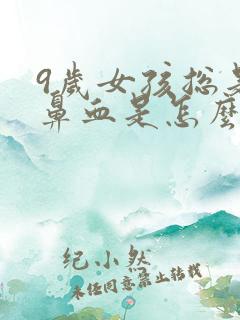 9岁女孩总是
鼻血是怎么
纪小然
未经同意禁止转载